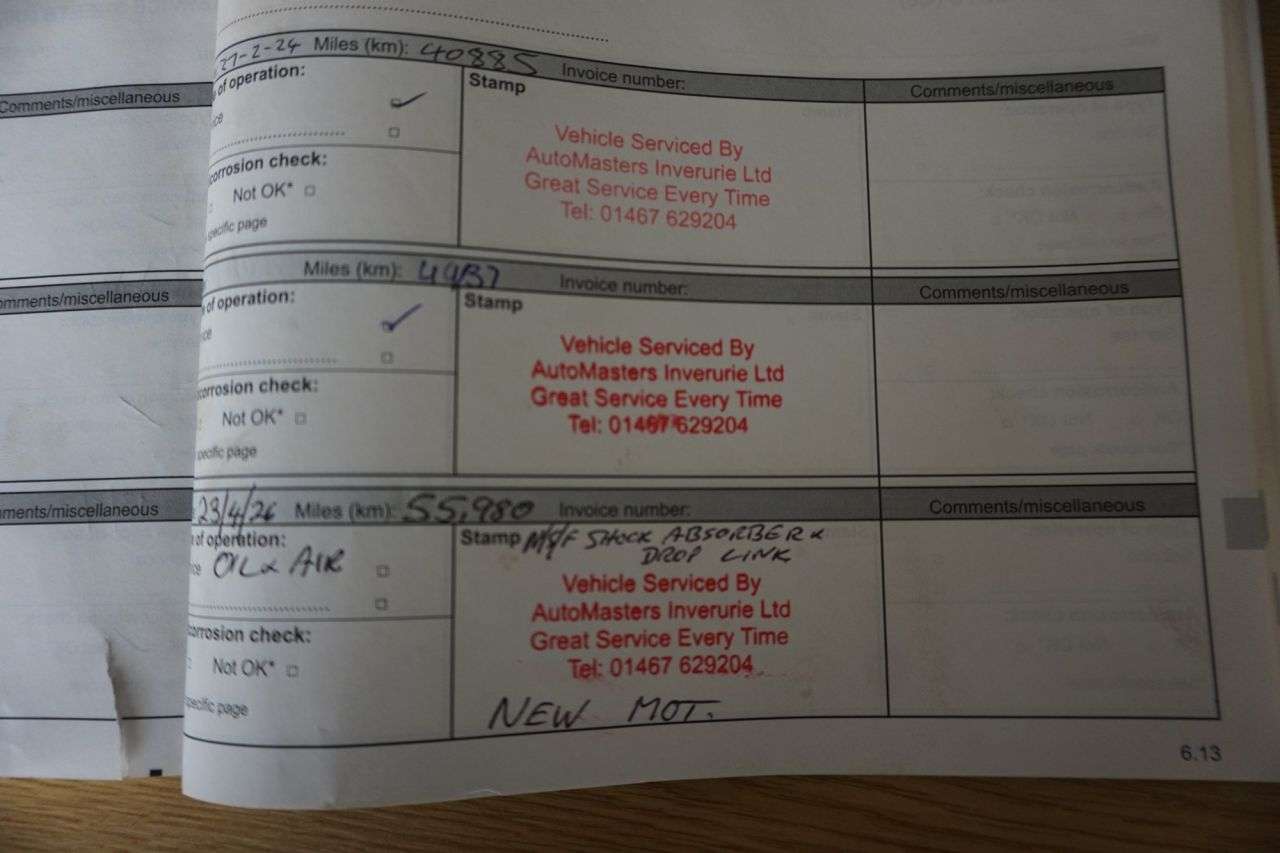 Comments/miscellaneous
omments/miscellaneous
mments/miscellaneous
27-2-24 Miles (km): 40885 Invoice number:
of operation:
ce
Stamp
Comments/miscellaneous
Vehicle Serviced By
AutoMasters Inverurie Ltd
Great Service Every Time
Tel: 01467 629204
corrosion check:
Not OK*
specific page
Miles (km): Invoice number:
of operation:
ce
Stamp
Comments/miscellaneous
Vehicle Serviced By
AutoMasters Inverurie Ltd
Great Service Every Time
Tel: 01467 629204
corrosion check:
Not OK*
specific page
23/4/26 Miles (km): 55,980 Invoice number:
of operation:
ce OIL & AIR
Stamp SHOCK ABSORBER &
DROP LINK
Comments/miscellaneous
Vehicle Serviced By
AutoMasters Inverurie Ltd
Great Service Every Time
Tel: 01467 629204
NEW MOT.
corrosion check:
Not OK*
specific page
6.13